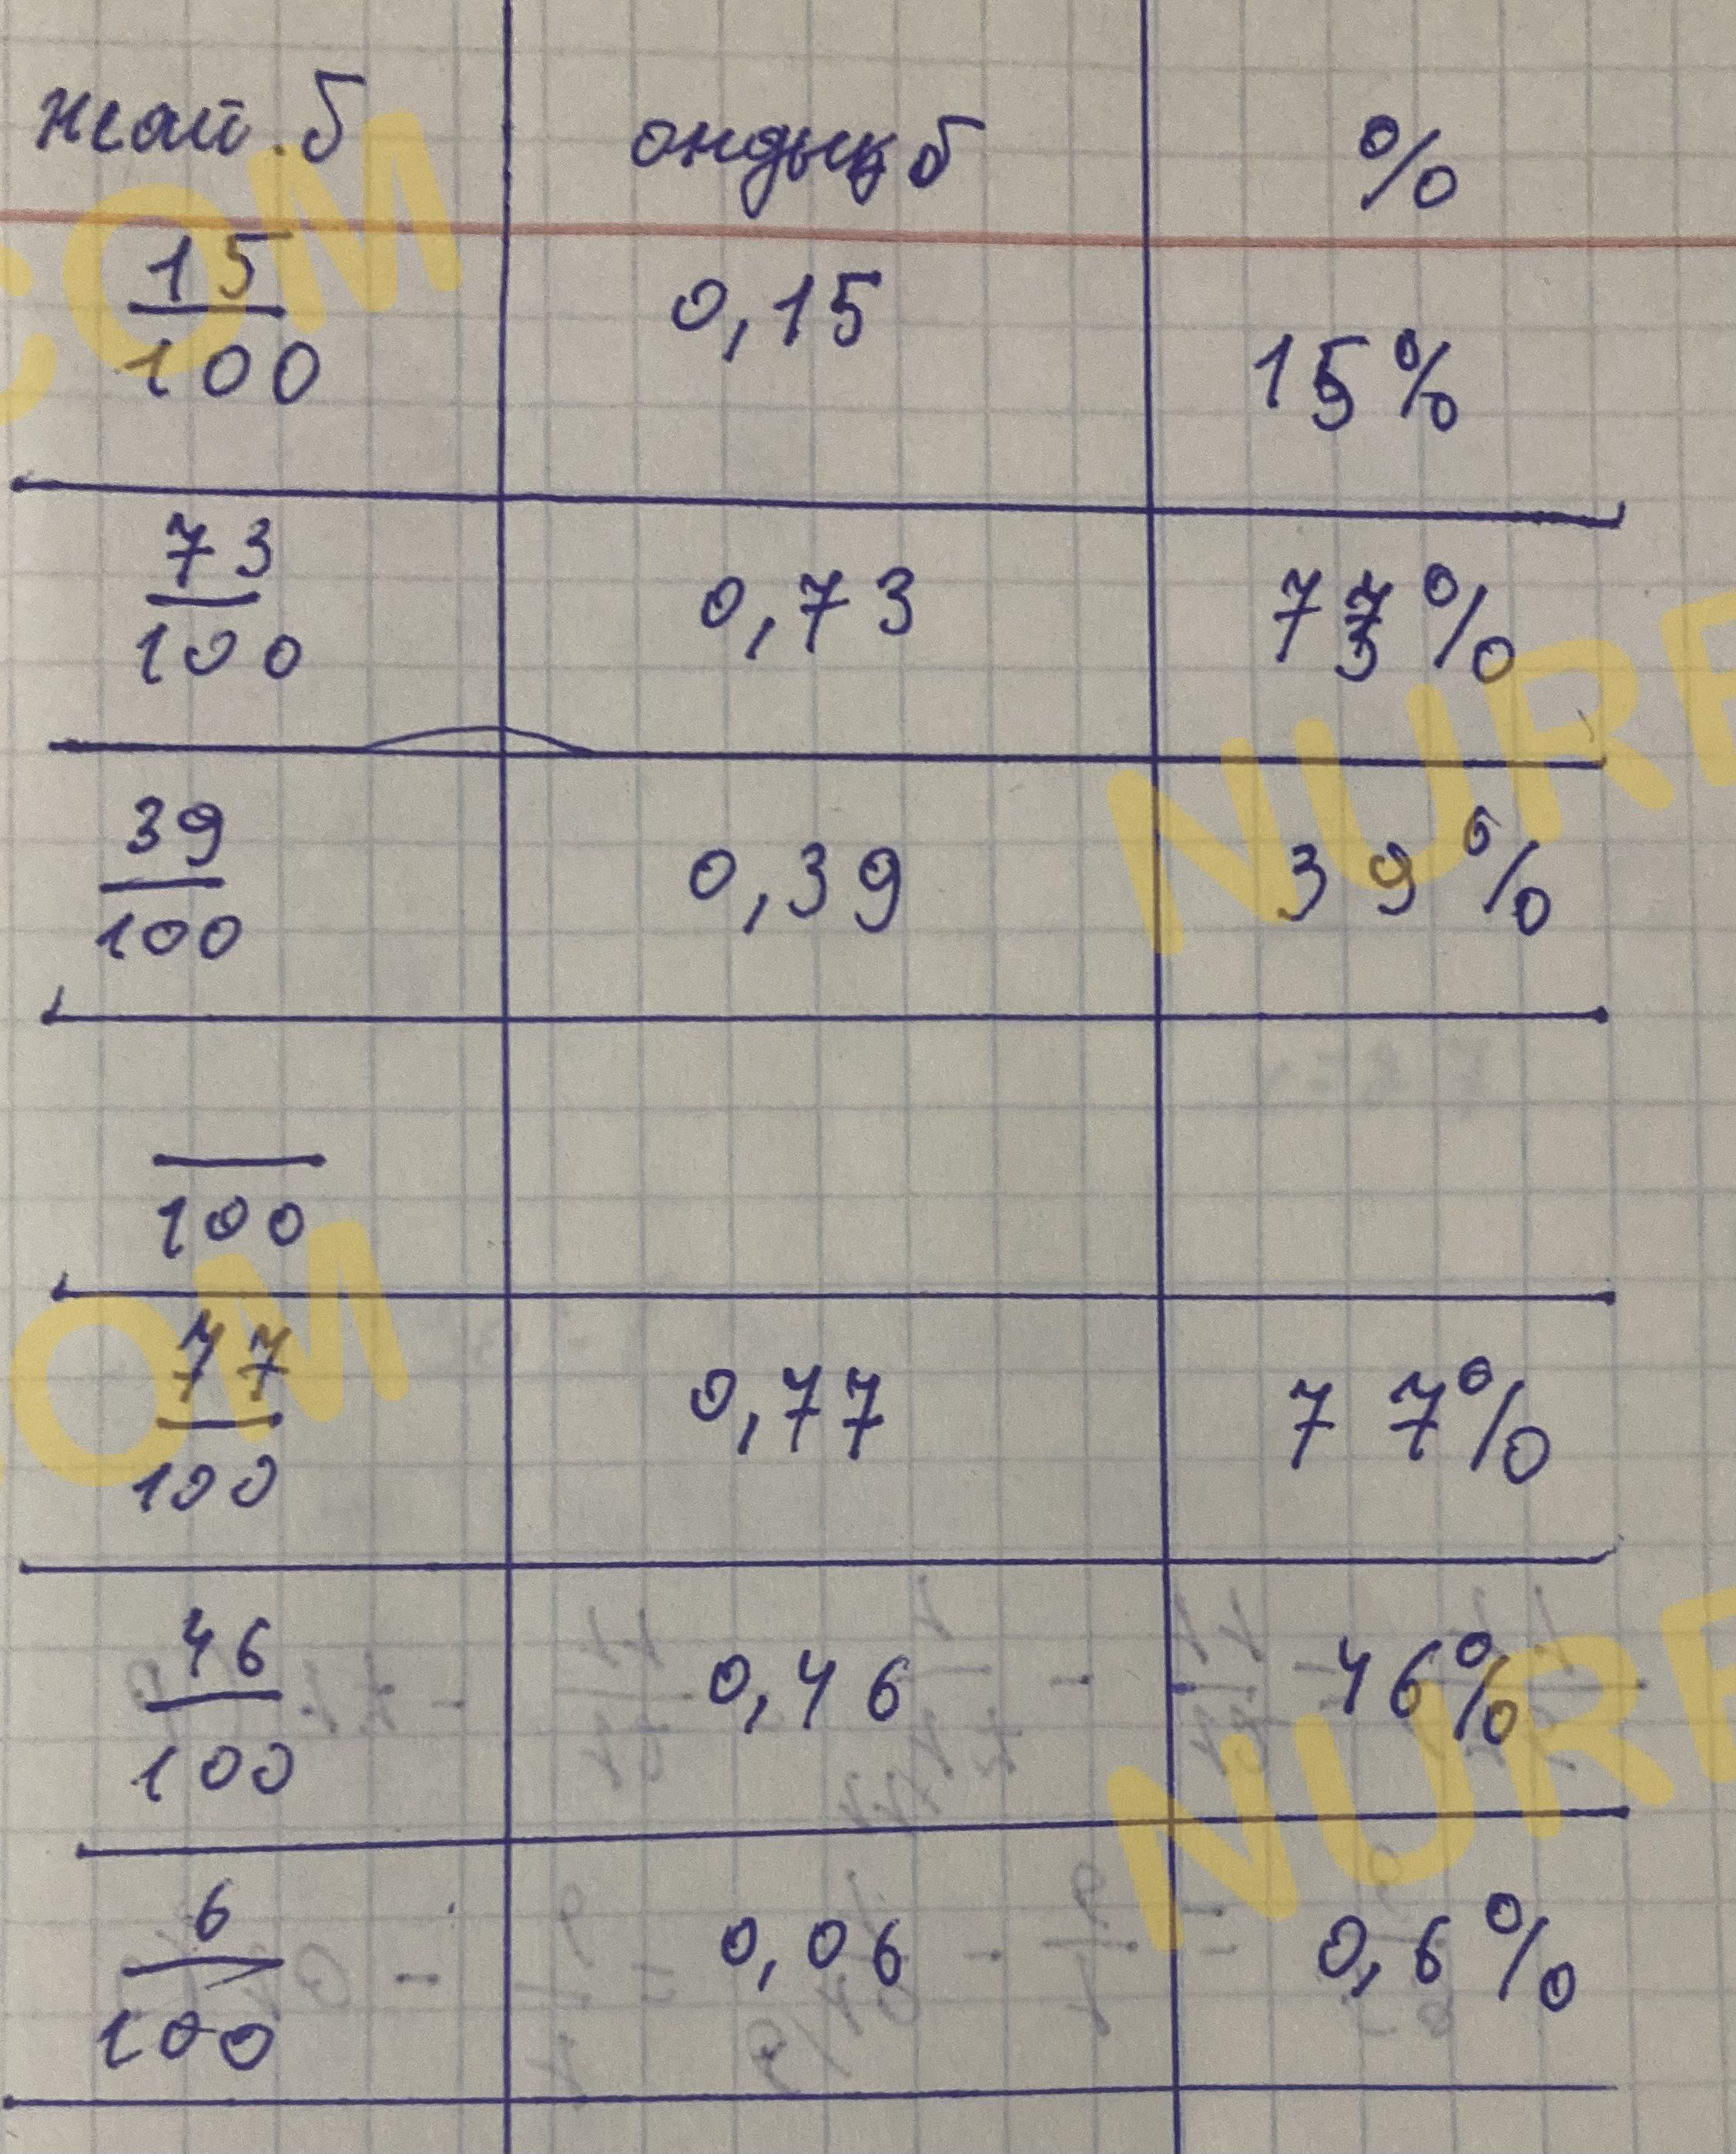 жай.б ондық б %
15/100 0,15 15%
73/100 0,73 73%
39/100 0,39 39%
/100
77/100 0,77 77%
46/100 0,46 46%
6/100 0,06 0,6%
COM
NURE
OM
NURE